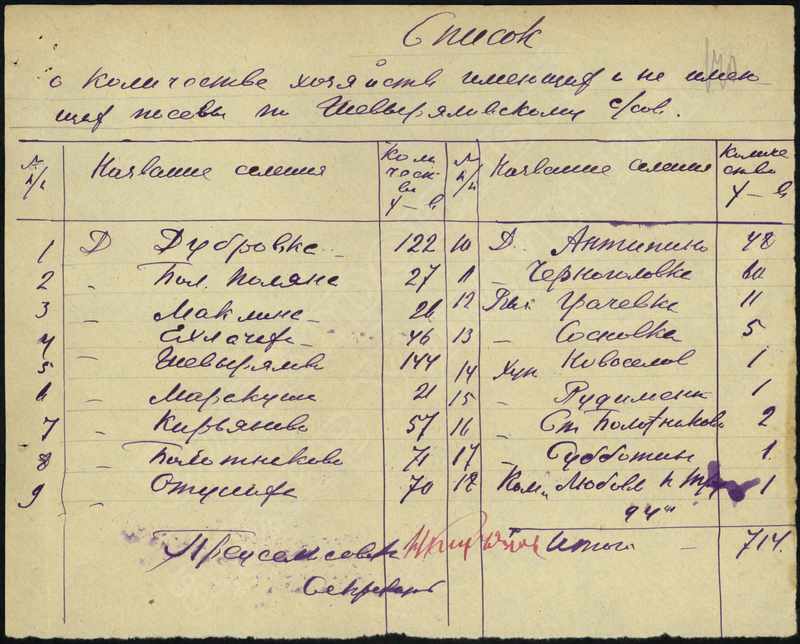 Список
о количестве хозяйств имеющих и не имею
щих посевы по Шевырялвскому с/сов.
№ п/п Название селения Коли честв
У-в № п/п Название селения Количе ство
У-в
1 Д Дубровка 122 10 Д. Антипино 48
2 " Бол. Поляна 27 11 - Черноголовка 10
3 - Маклино 21 12 Грачевка 11
4 - 46 13 - Сосновка 5
5 - Шевырялво 144 14 Хут Новоселов 1
6 - 21 15 - 1
7 - Кирьяново 57 16 " Ст Болотниково 2
8 " Болотниково 71 17 " Субботин 1
9 " 70 18 Ком. 1
Предсельсовета Итого - 714.
Секретарь